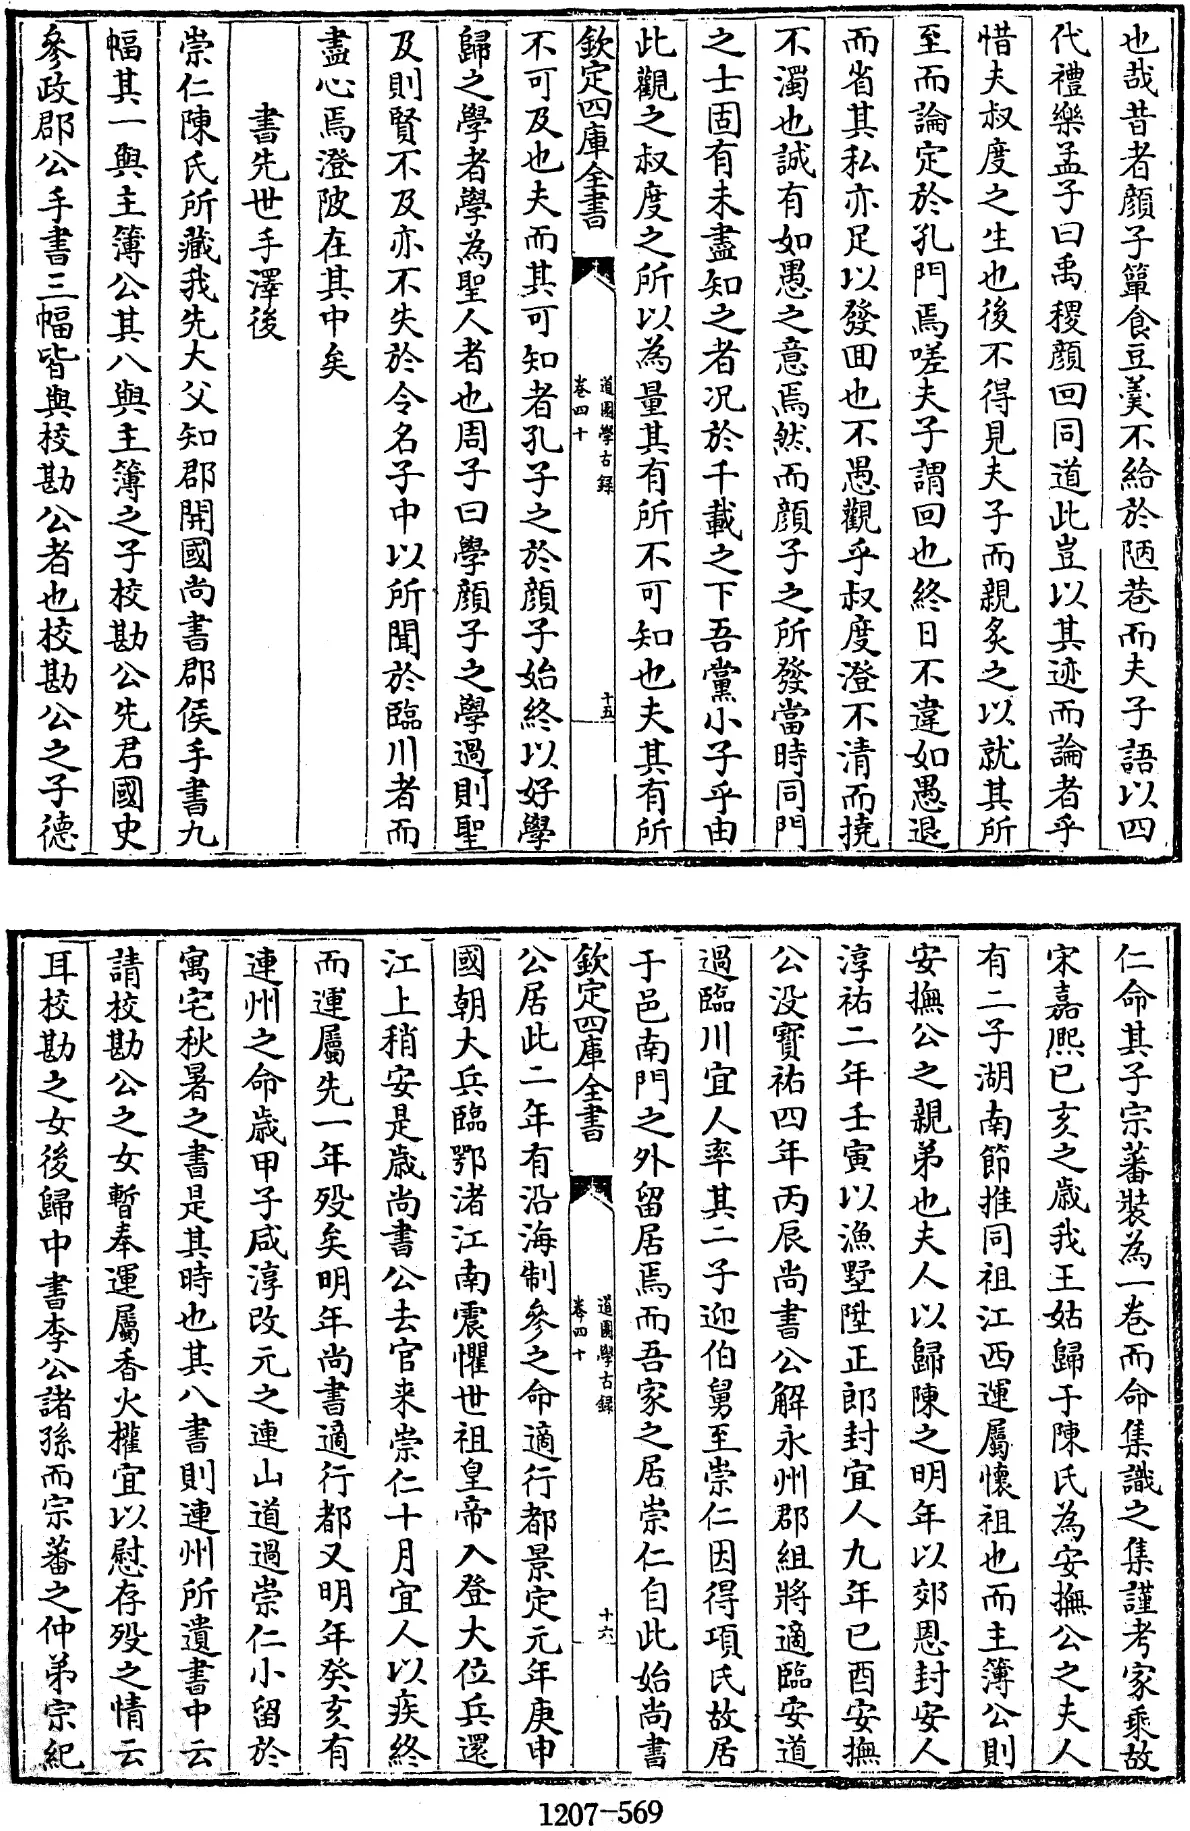 也哉昔者顔子簞食豆羹不給於陋巷而夫子語以四
代禮樂孟子曰禹稷顔回同道此豈以其迹而論者乎
惜夫叔度之生也後不得見夫子而親炙之以就其所
至而論定於孔門焉嗟夫子謂回也終日不違如愚退
而省其私亦足以發回也不愚觀乎叔度澄不清而撓
不濁也誠有如愚之意焉然而顔子之所發當時同門
之士固有未盡知之者況於千載之下吾黨小子乎由
此觀之叔度之所以為量其有所不可知也夫其有所
欽定四庫全書
道園學古録
卷四十
十五
不可及也夫而其可知者孔子之於顔子始終以好學
歸之學者學為聖人者也周子曰學顔子之學過則聖
及則賢不及亦不失於令名子中以所聞於臨川者而
盡心焉澄陂在其中矣
書先世手澤後
崇仁陳氏所藏我先大父知郡開國尚書郡侯手書九
幅其一與主簿公其八與主簿之子校勘公先君國史
參政郡公手書三幅皆與校勘公者也校勘公之子德
仁命其子宗蕃裝為一卷而命集識之集謹考家乘故
宋嘉熙已亥之歳我王姑歸于陳氏為安撫公之夫人
有二子湖南節推同祖江西運屬懷祖也而主簿公則
安撫公之親弟也夫人以歸陳之明年以郊恩封安人
淳祐二年壬寅以漁墅陞正郎封宜人九年已酉安撫
公没寶祐四年丙辰尚書公解永州郡組將適臨安道
過臨川宜人率其二子迎伯舅至崇仁因得項氏故居
于邑南門之外留居焉而吾家之居崇仁自此始尚書
欽定四庫全書
道園學古録
卷四十
十六
公居此二年有沿海制參之命適行都景定元年庚申
國朝大兵臨鄂渚江南震懼世祖皇帝入登大位兵還
江上稍安是歳尚書公去官来崇仁十月宜人以疾終
而運屬先一年殁矣明年尚書適行都又明年癸亥有
連州之命歳甲子咸淳改元之連山道過崇仁小留於
寓宅秋暑之書是其時也其八書則連州所遺書中云
請校勘公之女暫奉運屬香火權宜以慰存殁之情云
耳校勘之女後歸中書李公諸孫而宗蕃之仲弟宗紀
1207-569